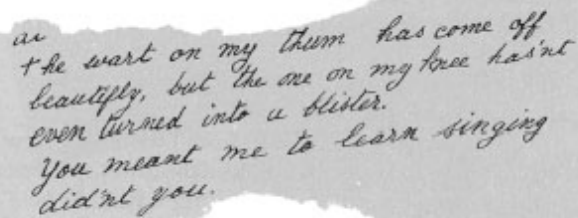 ar
the wart on my thum has come off
beautifly, but the one on my knee has'nt
even turned into a blister.
You meant me to learn singing
did'nt you.